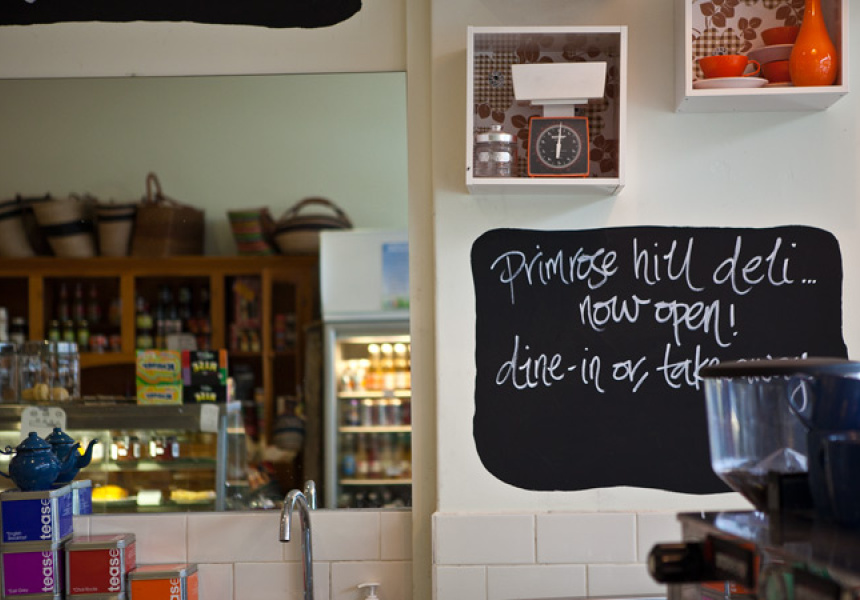 primrose hill deli...
now open!
dine-in or, take away
tease
tease
tease
tease